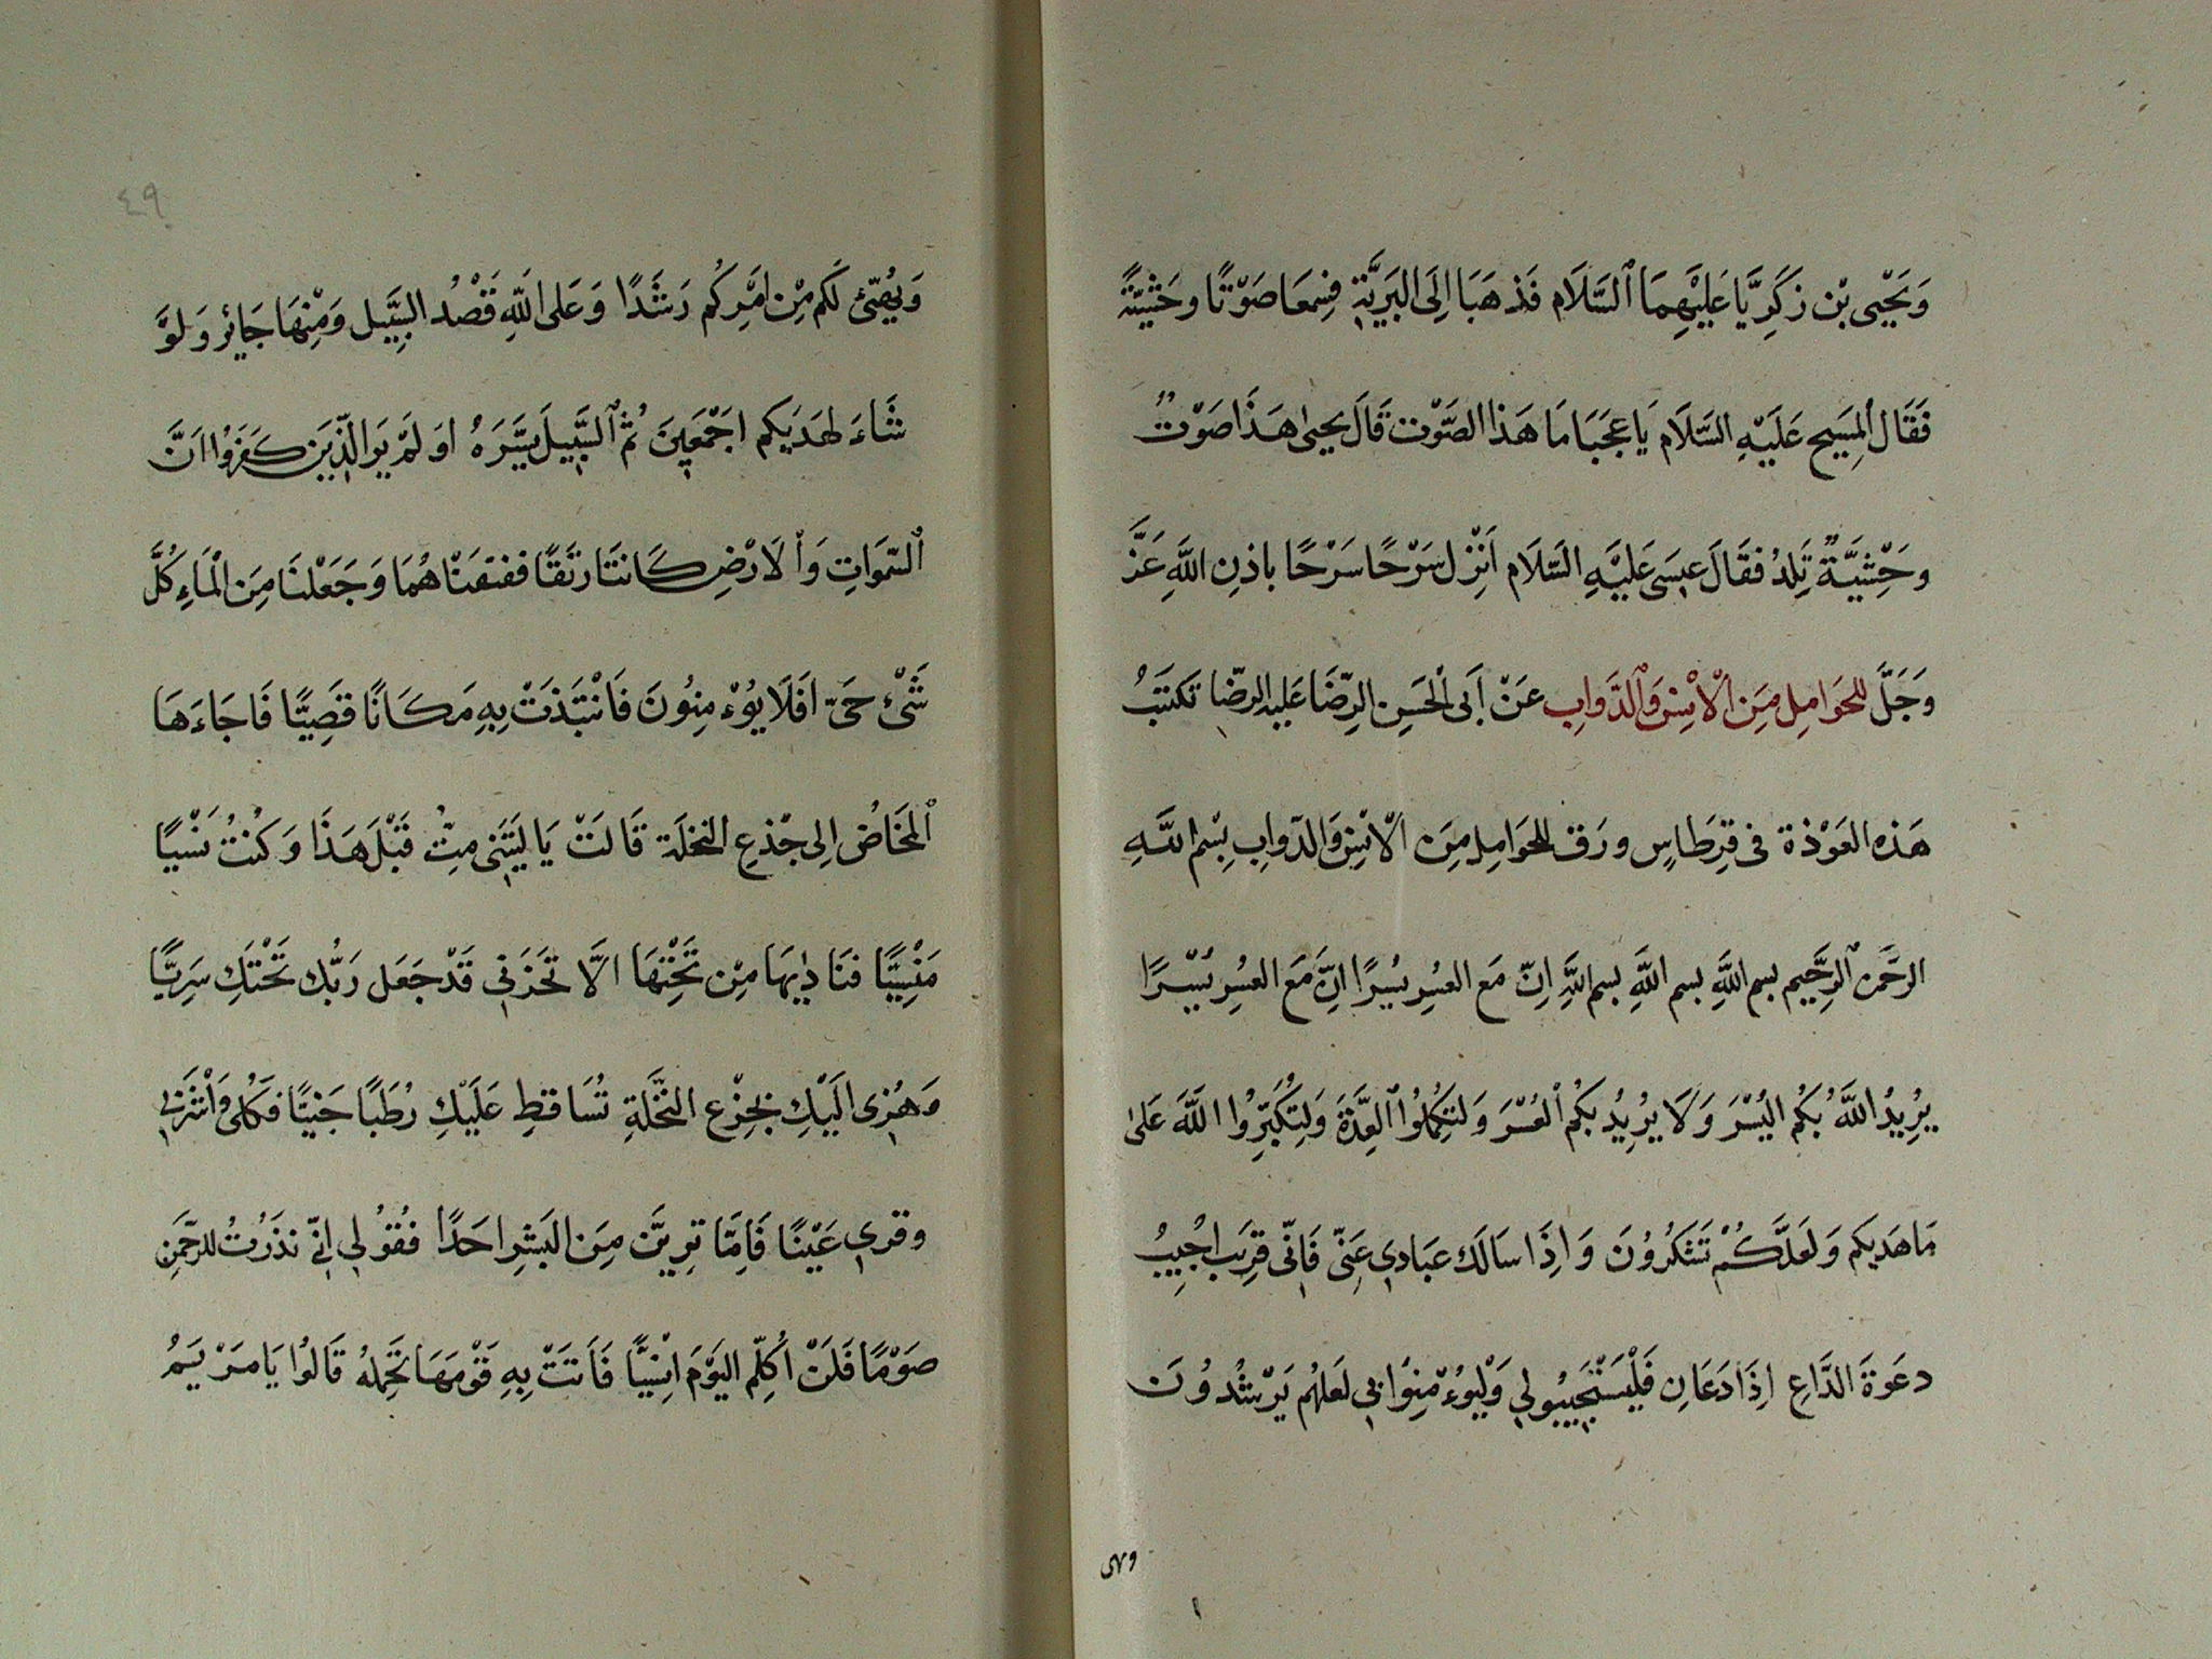 وَيَحْيى بْن زَكَرِيَّا عَلَيْهِمَا ٱلسَّلَام فَذهَبَا اِلَى البَرِيَّةِ فسِمعَا صَوْتًا وحَشْيَّةً
فَقَال ٱلمَسِيح عَلَيْهِ السَّلَام يَا عَجَبَا مَا هَذا الصَّوْت قَالَ يحيىٰ هَذَا صَوْتٌ
وحْشِيَّةٌ تَلِدُ فقَالَ عيسَى عَلَيْهِ السَّلَام اَنْزِل سَرْحًا سَرْحًا باذنِ اللَّهِ عَزَّ
وَجَلَّ للحَوَامِل مِنَ ٱلْاِنْسِ وَٱلدَّوابِ عَنْ اَبى الْحَسِن الرِّضَا عَليهِ الرضّا تكتَبُ
هَذه العَوْذة فى قرِطَاسٍ ورَق للحَوَامِل مِنَ الْاِنْسِ وَالدّوابِ بِسْمِ اللَّهِ
الرحَّمن ٱلرحَّيم بسم اللَّهِ بسم اللَّهِ بسم اللَّهِ اِنّ مَع العسْرِ يسُرًا اِنَّ مَعَ العسْرِ يسْرًا
يُرِيدُ اللَّهُ بكُم اليُسْرَ وَلَا يرُيدُ بكُم ٱلعُسْرَ وَلتكُمِلُوا ٱلعِدَّةَ وَلِتُكَبِّرُوا اللَّهَ عَلىٰ
مَا هَديكم وَلَعَلَّكُمْ تَشكُرُونَ وَاذَا سَالَك عبَادي عَنّى فَانّى قرِيَب اُجُيبُ
دعَوةَ الدَّاعِ اِذَا دَعَانِ فَلْيَسْتَجيبُولي وَلْيُوءْمِنُوا بي لَعَلهُم يَرْشُدُونَ
ويهى
٤٩
وَيهُيّئ لَكم مِنْ اَمْرِكُم رَشَدًا وَعَلى اللَّهِ قَصْدُ السَّبِيل وَمِنْهَا جَائِر وَلَوَّ
شَاءَ لهَدَيكم اَجْمَعِينَ ثُمَّ ٱلسَّبِيلَ يَسَّرَهُ اوَ لَمْ يَرَ الذّينَ كَفَرُوْا اَنَّ
ٱلسّمَواتِ وَٱلَارْضِ كَانتَا رتَقًا ففتقنَاهُمَا وَجَعَلْنَا مِنَ الْمَاءِ كُلَّ
شَىْئ حَىّ اَفَلَا يوُءْمِنُونَ فَانْتَبَذتْ بِهِ مَكَانًا قصَيًّا فَاجَاءَهَا
ٱلمخَاضُ الِى جذْعِ النخلَة قَالتَ يَا ليَتَنى مِتُّ قَبْلَ هَذَا وَكُنْتُ نَسْيًا
مَنْسِيًّا فنَاديهَا مِنْ تَحْتِهَا الَّا تحَزَنى قَدْ جَعَل رَبُّك تَحْتَكِ سَرِيًّا
وَهُزى الَيْكِ بجِزْعِ النَّخلَةِ تُسَاقطِ عَلَيْكِ رُطَبًا جَنيًّا فَكُلى وَاْشَرَبى
وقري عَيْنًا فَامِّا تريَنَّ مِنَ البَشرِ احَدًا فقُولي انّي نذَرْتُ للرحّمَنِ
صَوْمًا فَلَنْ اُكلّمِ اليَوْمَ انْسِيًّا فَاَتَتْ بِهِ قَوْمَهَا تَحِمله قَالوُا يَا مَرْيَمُ